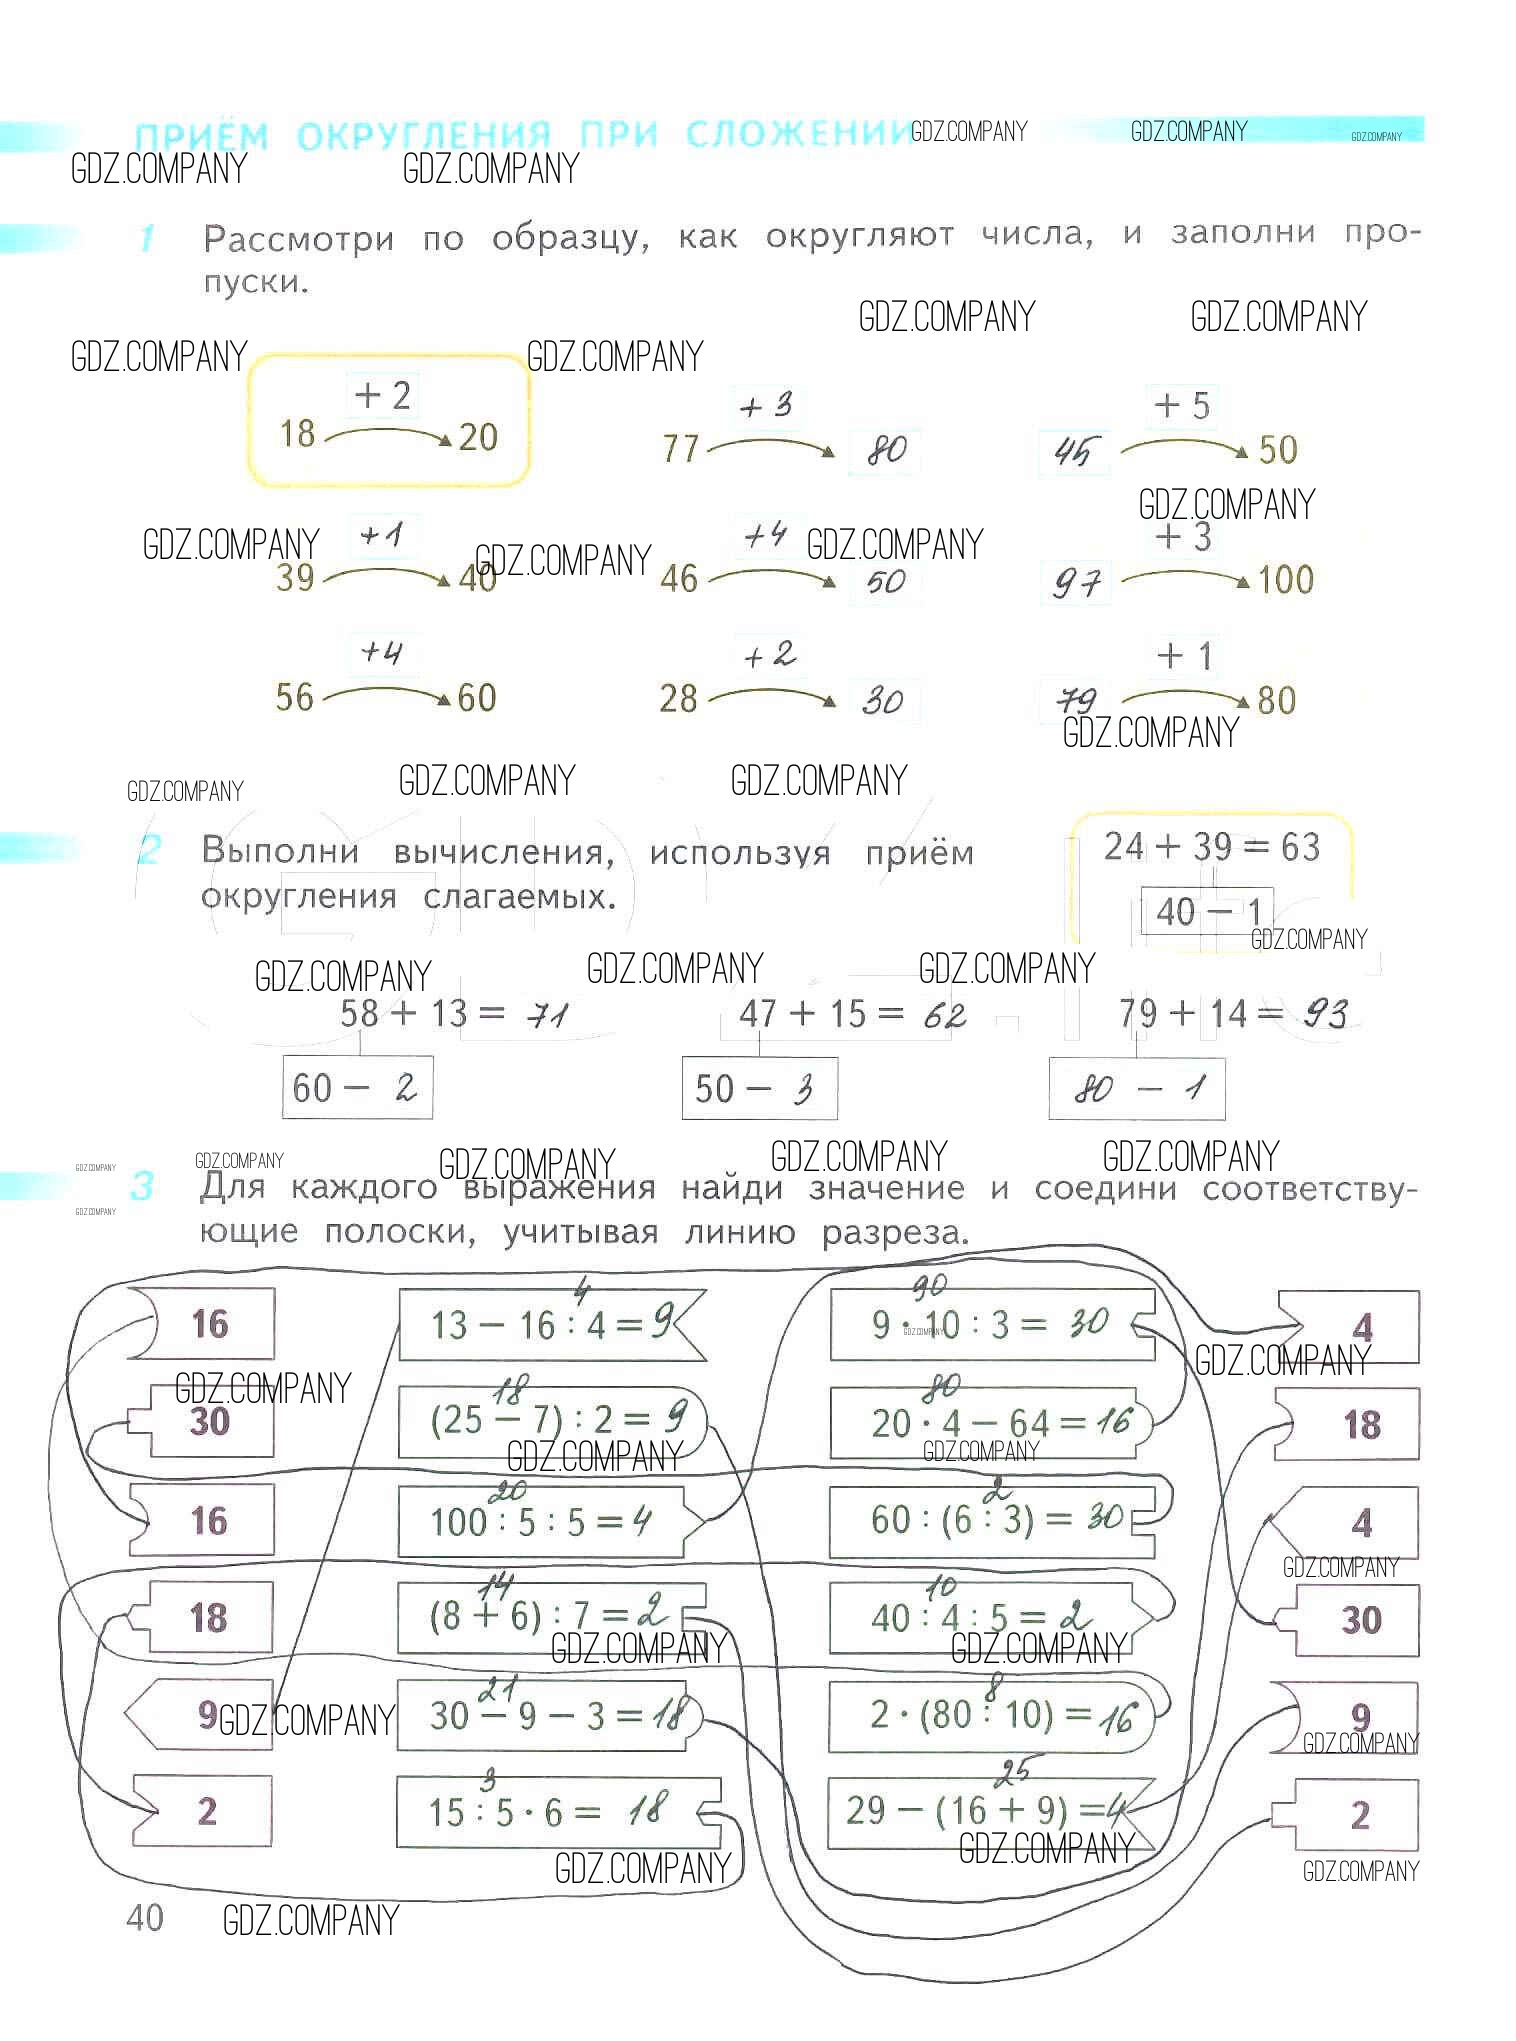 ПРИЁМ ОКРУГЛЕНИЯ ПРИ СЛОЖЕНИИ GDZ.COMPANY GDZ.COMPANY GDZ.COMPANY
GDZ.COMPANY GDZ.COMPANY
1 Рассмотри по образцу, как округляют числа, и заполни про-
пуски.
GDZ.COMPANY GDZ.COMPANY
GDZ.COMPANY GDZ.COMPANY
+ 2 + 3 + 5
18 20 77 80 45 50
GDZ.COMPANY
+1 +4 + 3
GDZ.COMPANY GDZ.COMPANY GDZ.COMPANY
39 40 46 50 97 100
+4 +2 + 1
56 60 28 30 79 80
GDZ.COMPANY
GDZ.COMPANY GDZ.COMPANY GDZ.COMPANY
2 Выполни вычисления, используя приём 24 + 39 = 63
округления слагаемых. 40 − 1
GDZ.COMPANY
GDZ.COMPANY GDZ.COMPANY GDZ.COMPANY
58 + 13 = 71 47 + 15 = 62 79 + 14 = 93
60 − 2 50 − 3 80 − 1
GDZ.COMPANY GDZ.COMPANY GDZ.COMPANY GDZ.COMPANY GDZ.COMPANY
3 Для каждого выражения найди значение и соедини соответству-
GDZ.COMPANY
ющие полоски, учитывая линию разреза.
4 90
16 13 − 16 : 4 = 9 9 · 10 : 3 = 30 4
GDZ.COMPANY
GDZ.COMPANY GDZ.COMPANY
18 80
30 (25 − 7) : 2 = 9 20 · 4 − 64 = 16 18
GDZ.COMPANY GDZ.COMPANY
20 2
16 100 : 5 : 5 = 4 60 : (6 : 3) = 30 4
GDZ.COMPANY
14 10
18 (8 + 6) : 7 = 2 40 : 4 : 5 = 2 30
GDZ.COMPANY GDZ.COMPANY
21 8
9 30 − 9 − 3 = 18 2 · (80 : 10) = 16 9
GDZ.COMPANY GDZ.COMPANY
3 25
2 15 : 5 · 6 = 18 29 − (16 + 9) = 4 2
GDZ.COMPANY GDZ.COMPANY GDZ.COMPANY
40 GDZ.COMPANY